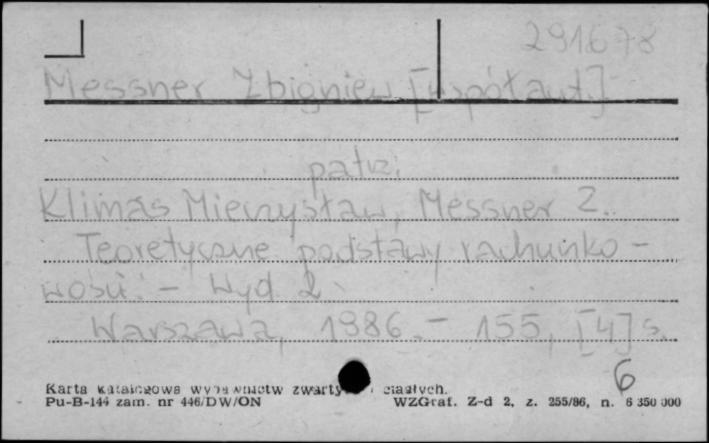 291678
Messner Zbigniew [współaut.]
patrz:
Klimas Mieczysław, Messner Z.
Teoretyczne podstawy rachunko-
wości. - Wyd. 2.
Warszawa, 1986. - 155, [4] s.
6
Karta katalogowa wydawnictw zwartych i ciągłych.
Pu-B-144 zam. nr 446/DW/ON WZGraf. Z-d 2, z. 255/86, n. 6 350 000